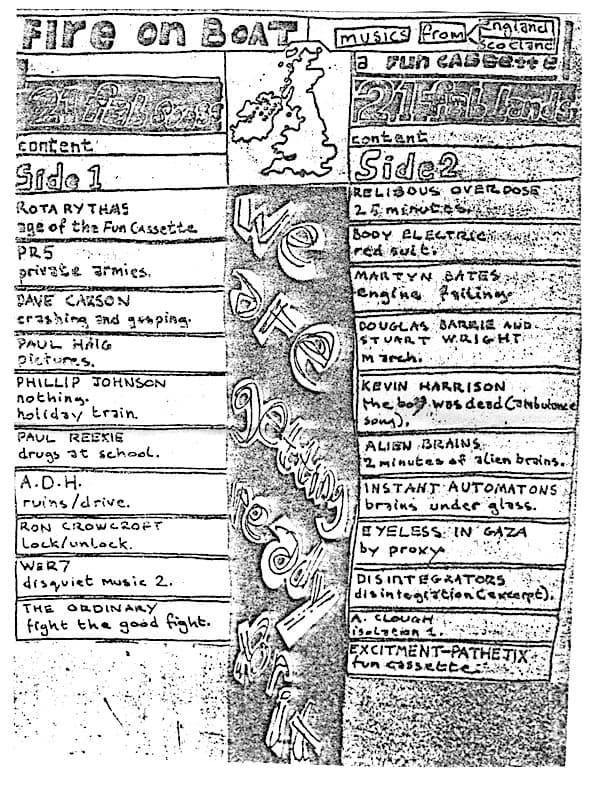 FIRE ON BOAT
MUSICS FROM England
Scocland
a FUN CASSETTE
21 fab
content
Side 1
ROTARYTHAS
age of the Fun Cassette
PR5
private armies.
DAVE CARSON
crashing and gasping.
PAUL HAIG
pictures.
PHILLIP JOHNSON
nothing.
holiday train.
PAUL REEKIE
drugs at school.
A.D.H.
ruins/drive.
RON CROWCROFT
Lock/unlock.
WeR7
disquiet music 2.
THE ORDINARY
fight the good fight.
We
are
getting
21 fab bands
content
Side 2
RELIGOUS OVERDOSE
25 minutes.
BODY ELECTRIC
red suit.
MARTYN BATES
engine failing.
DOUGLAS BARRIE AND
STUART WRIGHT
march.
KEVIN HARRISON
the boy was dead (ambulance
song).
ALIEN BRAINS
2 minutes of alien brains.
INSTANT AUTOMATONS
brains under glass.
EYELESS IN GAZA
by proxy
DISINTEGRATORS
disintegration (excerpt).
A. CLOUGH
isolation 1.
EXCITMENT-PATHETIX
fun cassette.